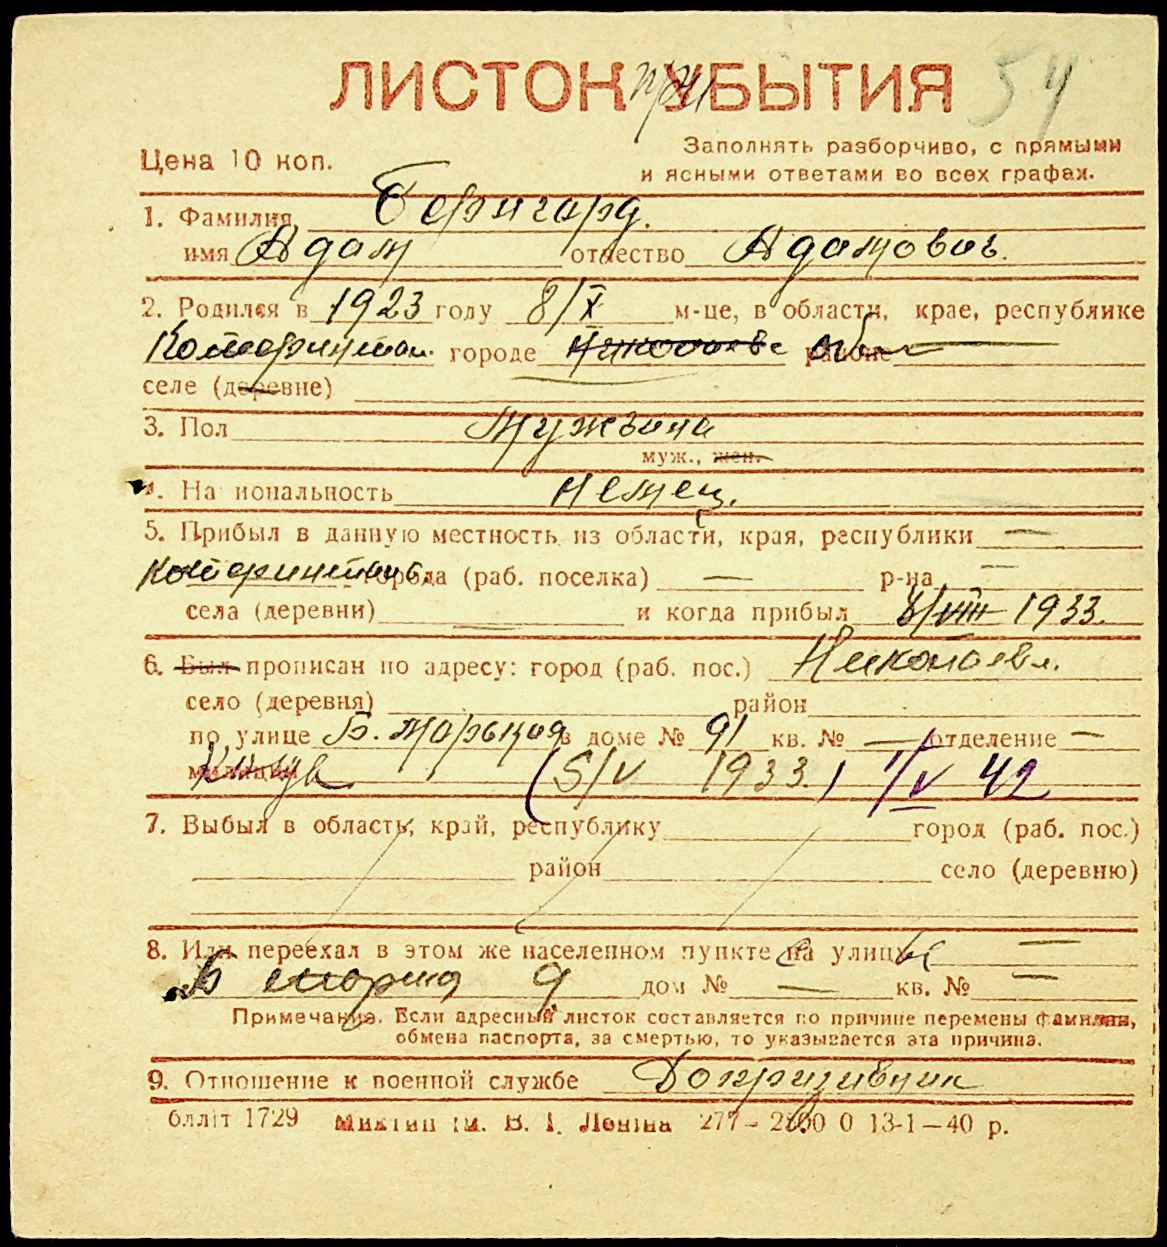 ЛИСТОК УБЫТИЯ при 54
Цена 10 коп.
Заполнять разборчиво, с прямыми
и ясными ответами во всех графах.
1. Фамилия Беригард.
имя Адам отчество Адамович.
2. Родился в 1923 году 8/X м-це, в области, крае, республике
городе Николаеве обл
селе (деревне)
3. Пол Мужчина
муж., жен.
4. Национальность Немец.
5. Прибыл в данную местность из области, края, республики —
города (раб. поселка) — р-на —
села (деревни) и когда прибыл 3/VIII 1933.
6. Был прописан по адресу: город (раб. пос.) Николаев.
село (деревня) район
по улице Б. Морская в доме № 91 кв. № — отделение —
милиции (5/V 1933.) 1/V 42
7. Выбыл в область, край, республику город (раб. пос.)
район село (деревню)
8. Или переехал в этом же населенном пункте на улицу —
Б 9 дом № — кв. № —
Примечание. Если адресный листок составляется по причине перемены фамилии,
обмена паспорта, за смертью, то указывается эта причина.
9. Отношение к военной службе Допризывник
блліт 1729 ім. В. І. Леніна 277— 0 13-1—40 р.